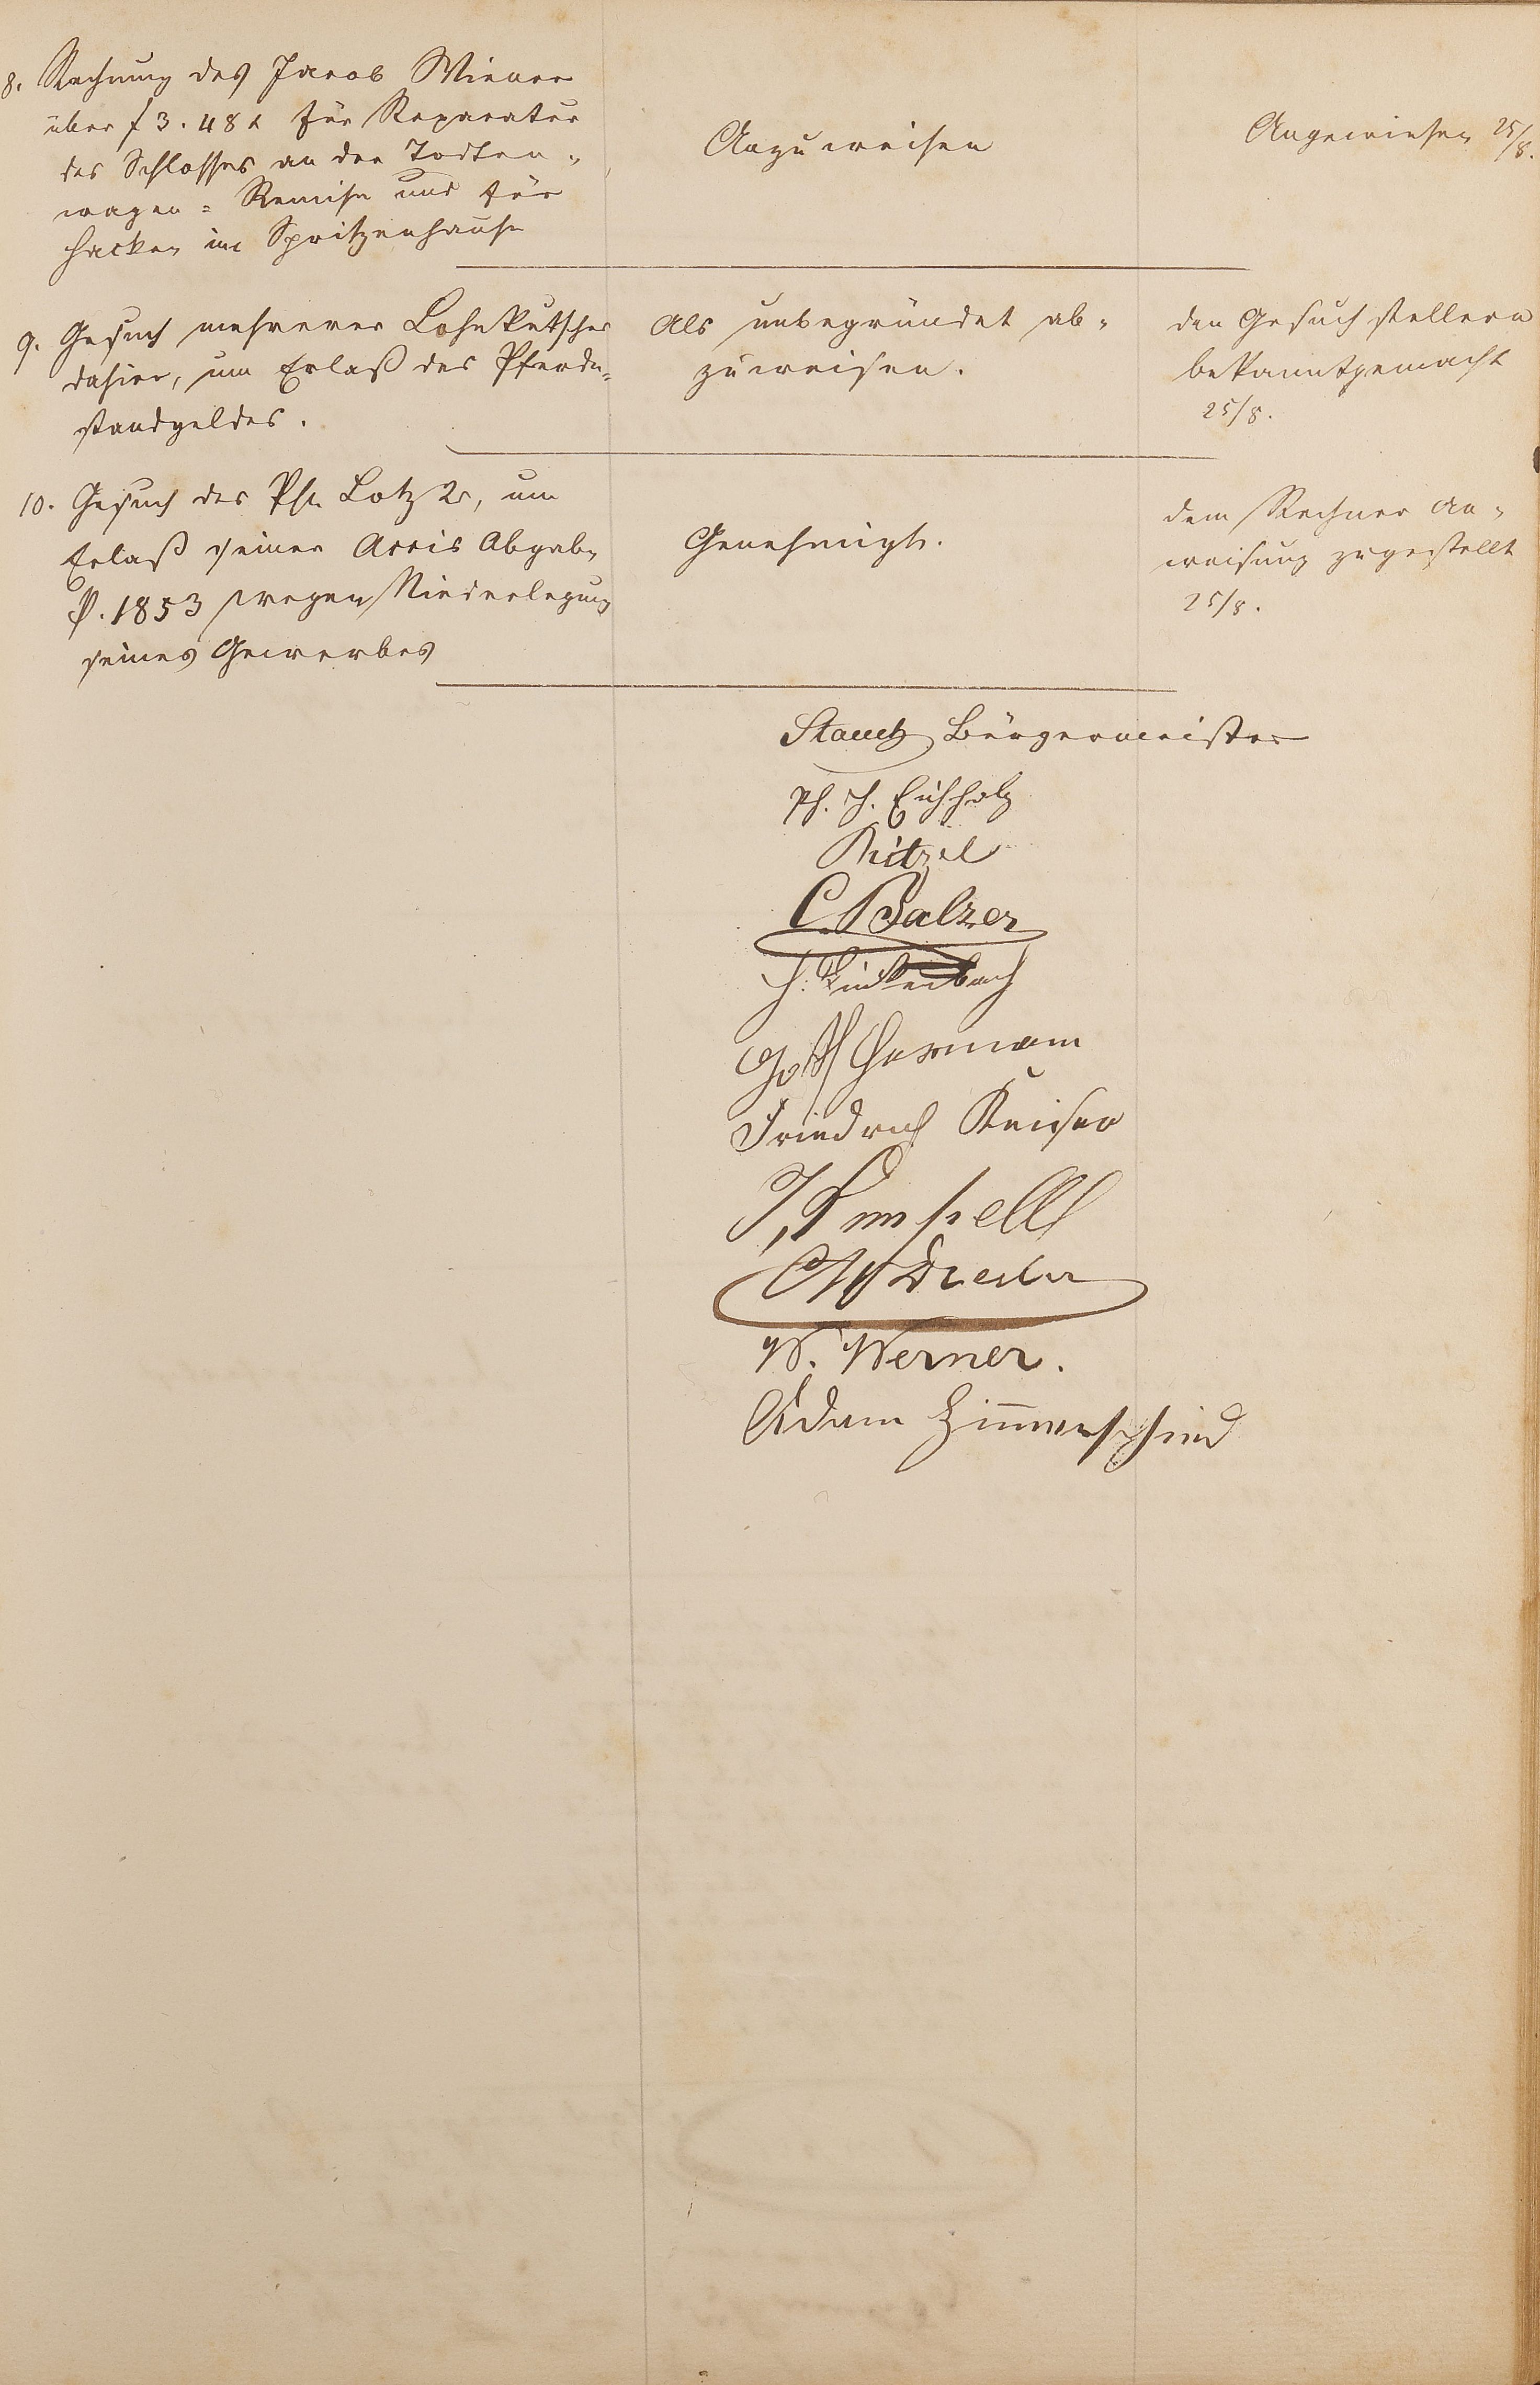 8. Rechnung des Jacob Wiener
über f 3. 48 x für Reparatur
des Schlosses an der Todten-
wagen = Remise und für
Hacken im Spritzenhause
Anzuweisen
Angewiesen 25/8.
9. Gesuch mehrerer Lohnkutscher
dahier, um Erlaß des Pferde-
standgeldes.
Als unbegründet ab-
zuweisen.
den Gesuchstellern
bekanntgemacht
25/8.
10. Gesuch des Ph. Lotz 2r, um
Erlaß seiner Accis Abgabe
p. 1853 wegen Niederlegung
seines Gewerbes
Genehmigt.
dem Rechner An-
weisung zugestellt
25/8.
Bürgermeister
Ph. J. Eichholz
Kitzel
C. Balzer
Gottf Hermann
Friedrich Keiser
W. Werner.
Adam Zimmerschied